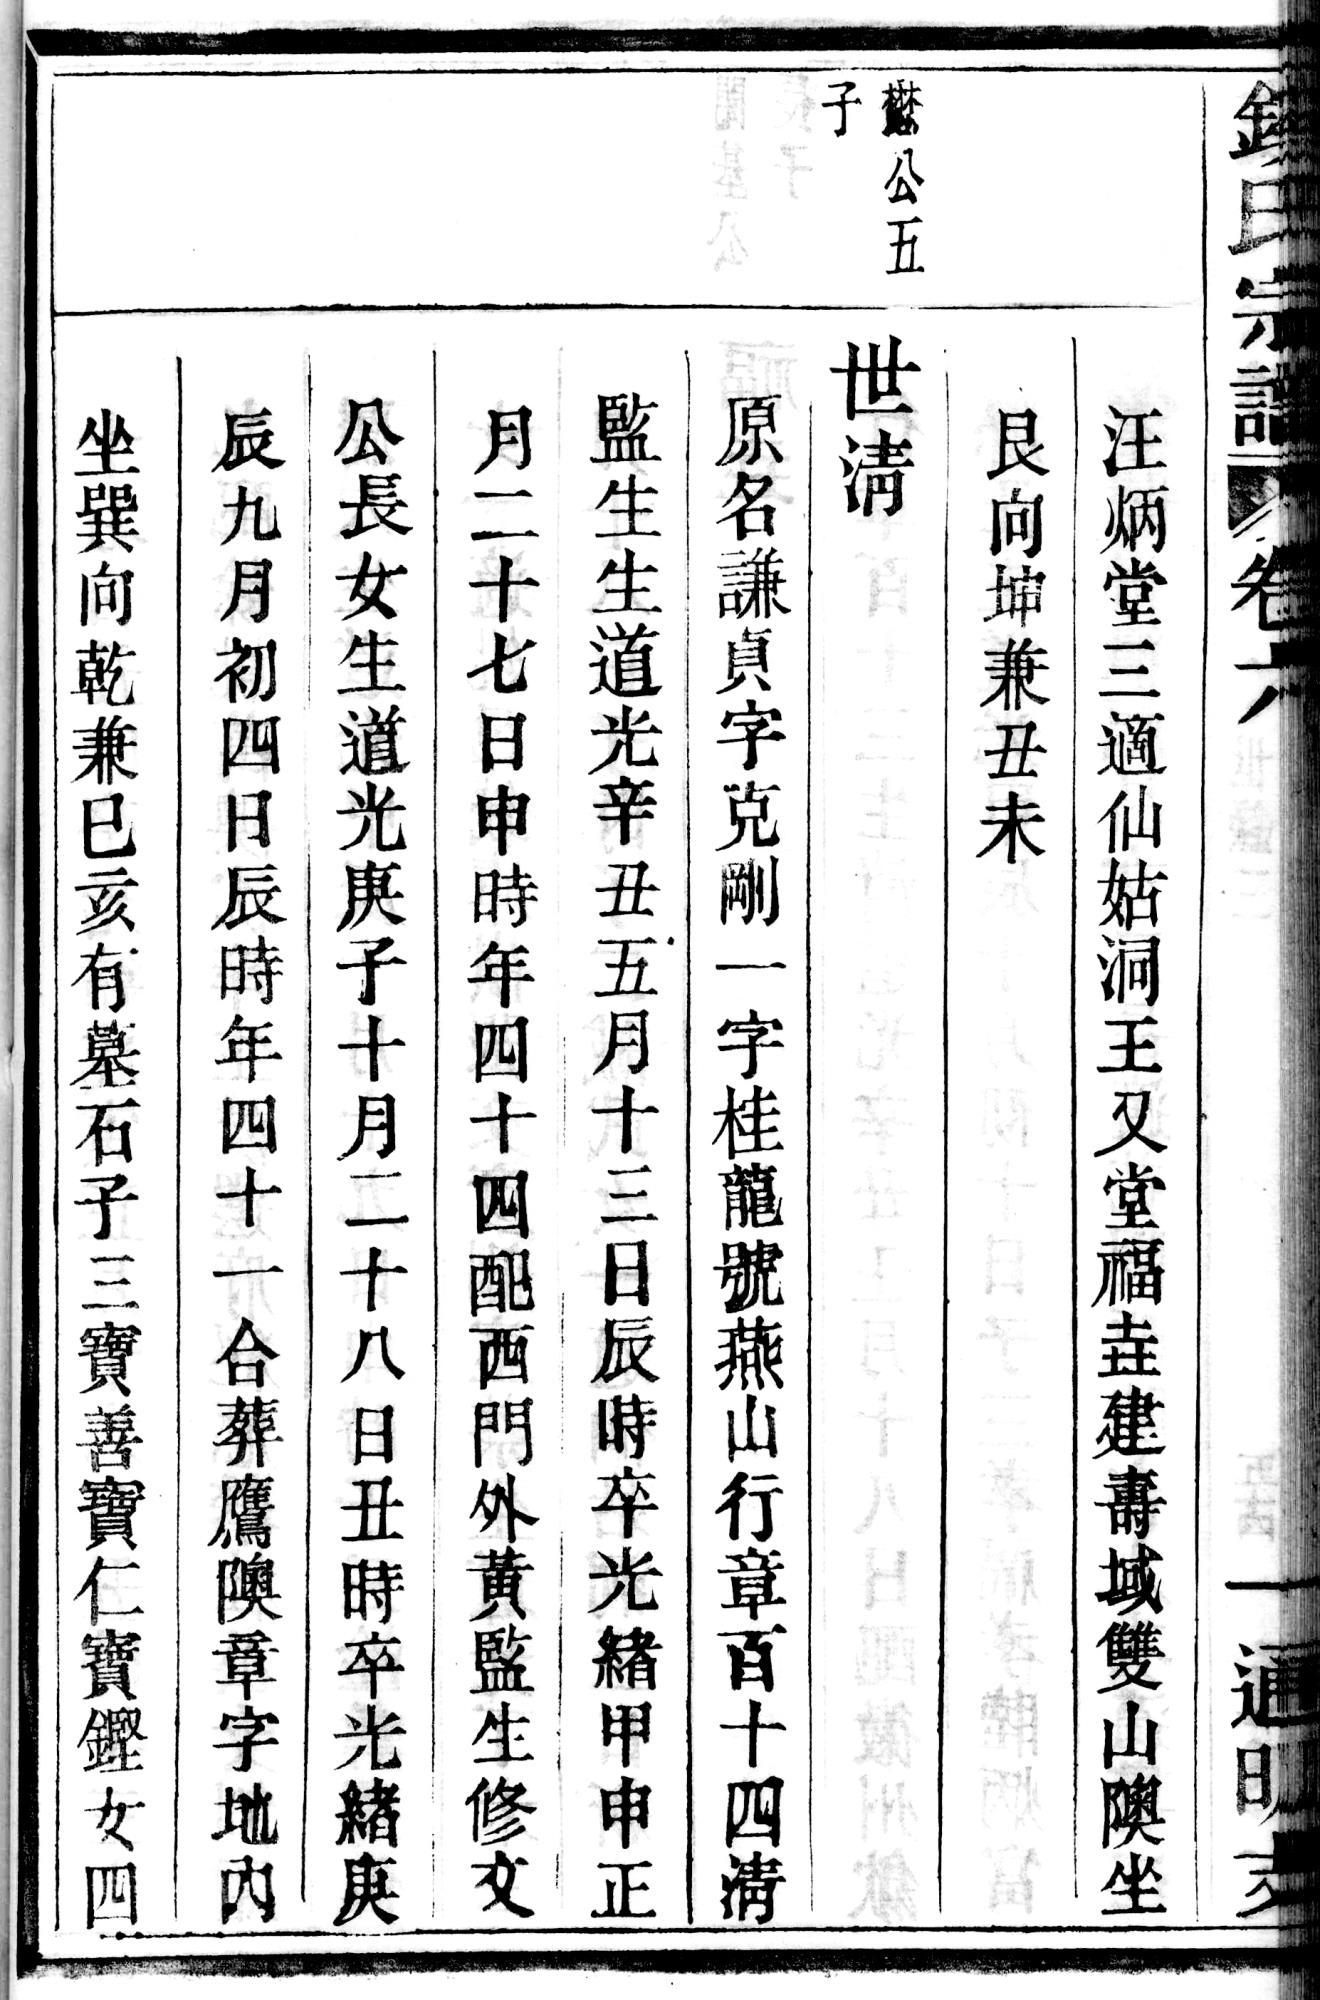 氏宗譜 卷六 一 通明支
汪炳堂三適仙姑洞王又堂福壵建壽域雙山隩坐
艮向坤兼丑未
懋公五
子
世淸
原名謙貞字克剛一字桂龍號燕山行章百十四淸
監生生道光辛丑五月十三日辰時卒光緖甲申正
月二十七日申時年四十四配西門外黃監生修文
公長女生道光庚子十月二十八日丑時卒光緖庚
辰九月初四日辰時年四十一合葬鷹隩章字地內
坐巽向乾兼巳亥有墓石子三寶善寶仁寶鏗女四